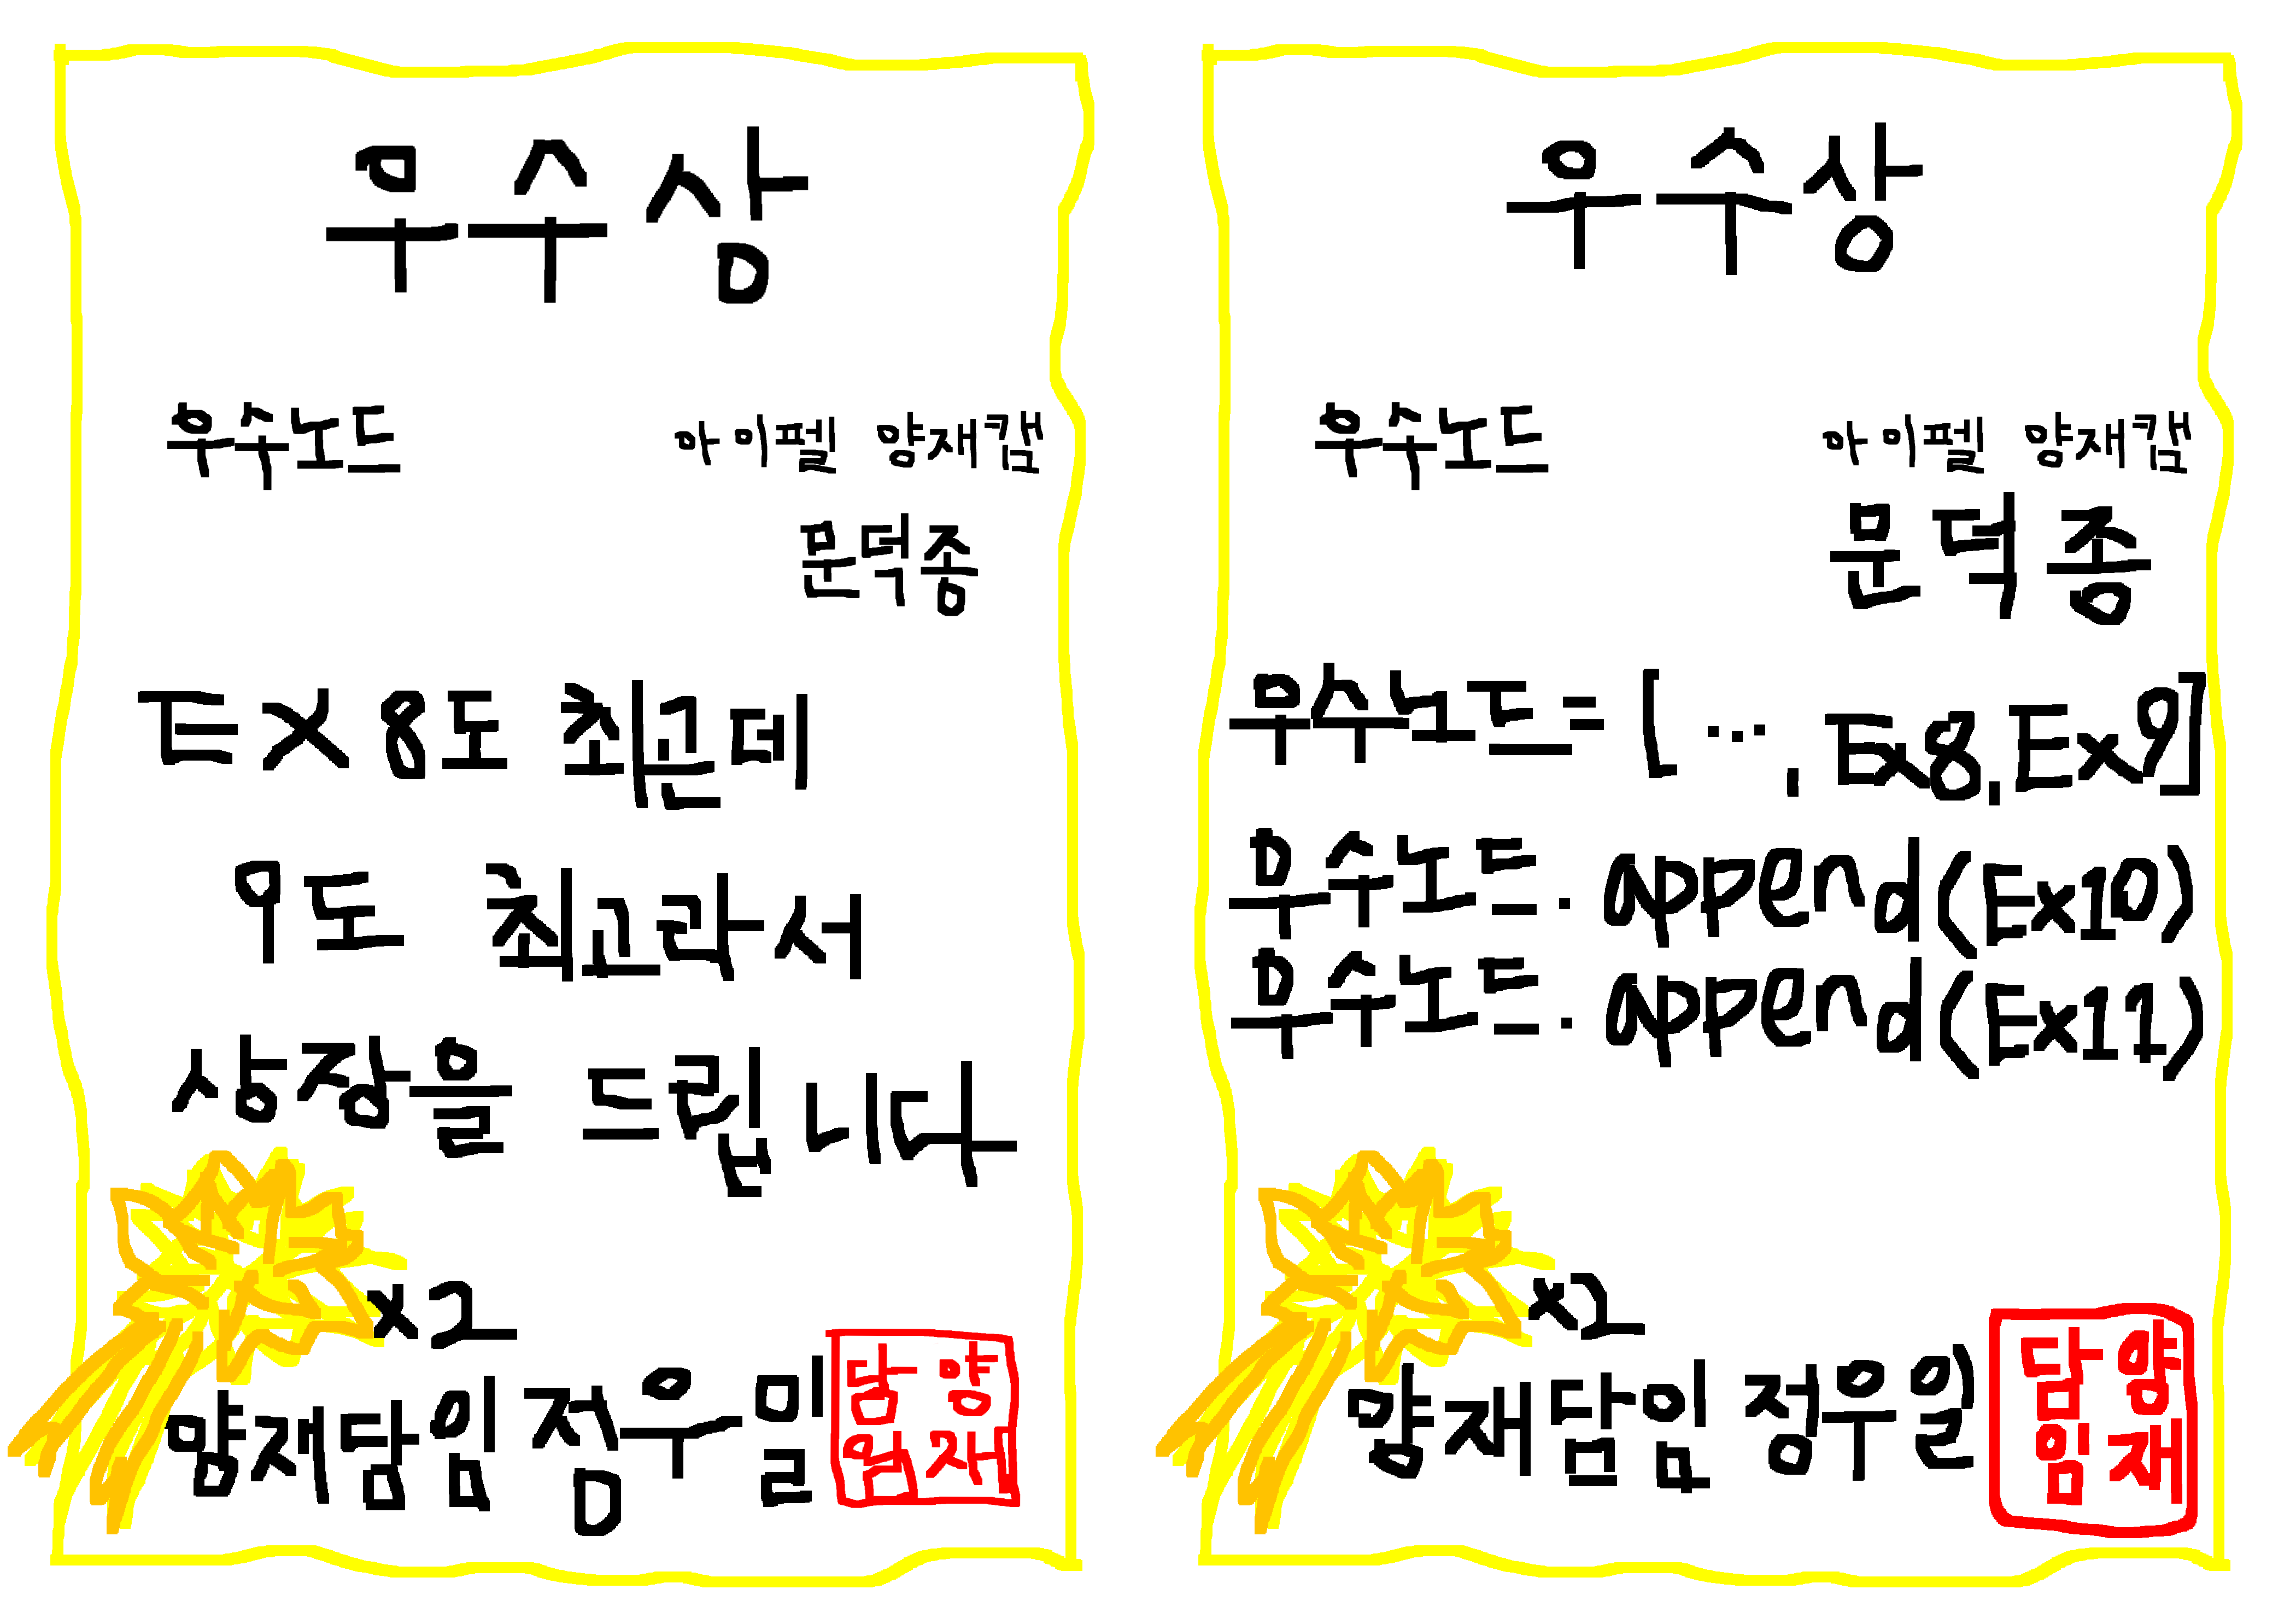 우수상
우수노드 아이펠 양재캠
문덕종
EX 8도 최곤데
9도 최고라서
상장을 드립니다
x2
양재담임 정우일
담양
임재
우수상
우수노드 아이펠 양재캠
문덕종
우수노드=[…, Ex8, Ex9]
우수노드.append(Ex10)
우수노드.append(Ex11)
x2
양재담임 정우일
담양
임재